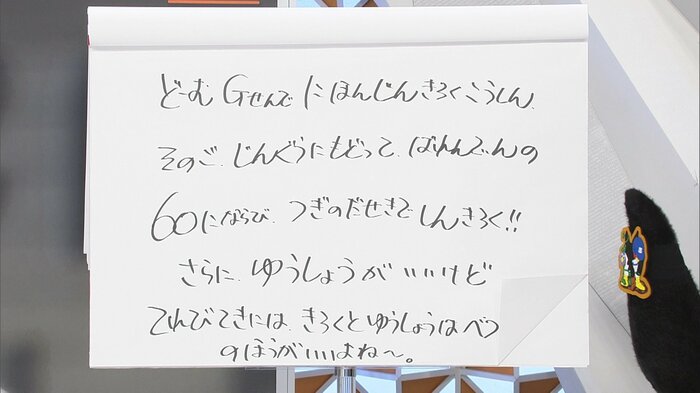 どーむGせんでにほんじんきろくこうしん、
そのご、じんぐうにもどって、ばれんでぃんの
60にならび、つぎのだせきでしんきろく!!
さらに、ゆうしょうがいいけど
てれびてきには、きろくとゆうしょうはべつ
のほうがいいよね〜。